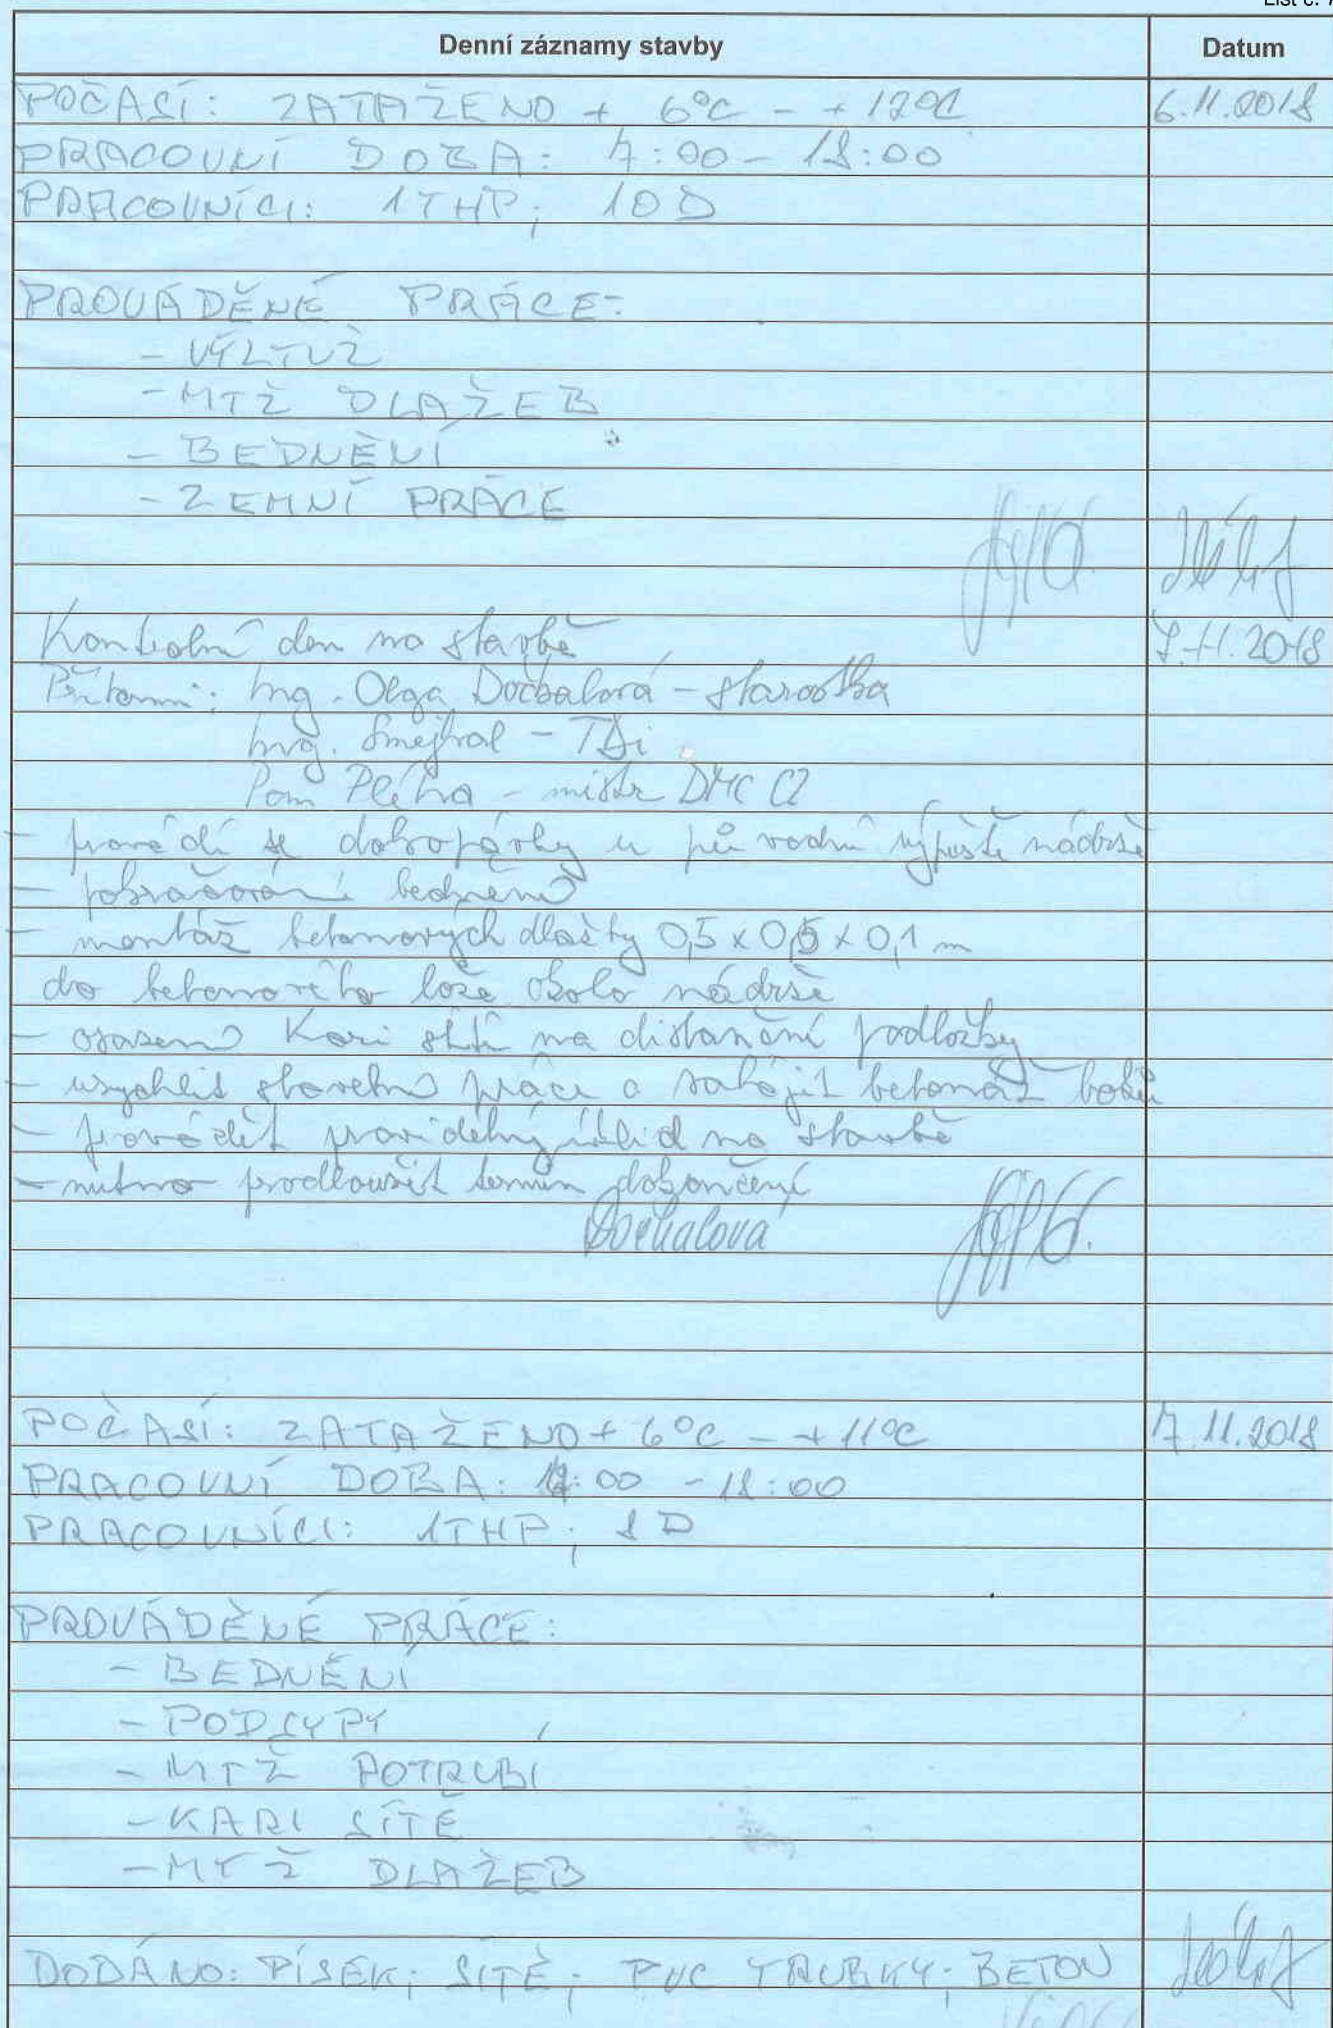 List č. 7
Denní záznamy stavby Datum
POČASÍ: ZATAŽENO + 6°C - +12°C 6.11.2018
PRACOVNÍ DOBA: 7:00 - 18:00
PRACOVNÍCI: 1THP; 10D
PROVÁDĚNÉ PRÁCE:
- VÝZTUŽ
- MTŽ DLAŽEB
- BEDNĚNÍ
- ZEMNÍ PRÁCE
Kontrolní den na stavbě 7.11.2018
Přítomni: Ing. Olga Dočkalová - starostka
Ing. Smejkal - TDi
Pan Plíha - mistr DMC CZ
- provádí se dobropávky u původní výpusti nádrže
- pokračování bednění
- montáž betonových dlažby 0,5 x 0,5 x 0,1 m
do betonového lože okolo nádrže
- osazení Kari sítí na distanční podložky
- urychlit stavební práce a zahájit betonáž boků
- provádět pravidelný úklid na stavbě
- nutno prodloužit termín dokončení
Dočkalová
POČASÍ: ZATAŽENO + 6°C - + 11°C 7.11.2018
PRACOVNÍ DOBA: :00 - 18:00
PRACOVNÍCI: 1THP; 8D
PROVÁDĚNÉ PRÁCE:
- BEDNĚNÍ
- PODSYPY
- MTŽ POTRUBÍ
- KARI SÍTĚ
- MTŽ DLAŽEB
DODÁNO: PÍSEK; SÍTĚ; PVC TRUBKY; BETON